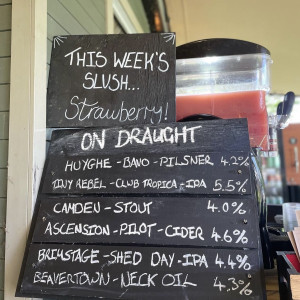 THIS WEEK'S
SLUSH...
Strawberry!
ON DRAUGHT
HUYGHE - BAVO - PILSNER 4.2%
TINY REBEL - CLUB TROPICA - IPA 5.5%
CAMDEN - STOUT 4.0%
ASCENSION - PILOT - CIDER 4.6%
BRIXSTAGE - SHED DAY - IPA 4.4%
BEAVERTOWN - NECK OIL 4.3%